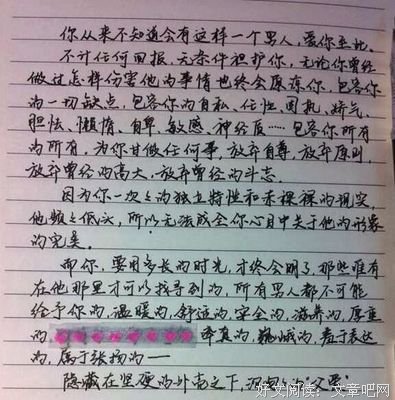 你从来不知道会有这样一个男人，爱你至此。
不计任何回报，无条件袒护你，无论你曾经
做过怎样伤害他的事情也终会原谅你，包容你
的一切缺点，包容你的自私、任性、固执、娇气、
胆怯、懒惰、自卑、敏感、神经质……包容你所有
的所有，为你甘做任何事，放弃自尊，放弃原则，
放弃曾经的高大，放弃曾经的斗志。
因为你一次次的独立特性和赤裸裸的现实，
他频频低头，所以无法成全你心目中关于他的形象
的完美。
而你，要用多长的时光，才终会明了，那些唯有
在他那里才可以找寻到的，所有男人都不可能
给予你的，温暖的，舒适的，安全的，滋养的，厚重
的，率真的，巍峨的，羞于表达
的，属于张扬的——
隐藏在坚硬的外壳之下，
好文阅读：文章吧网